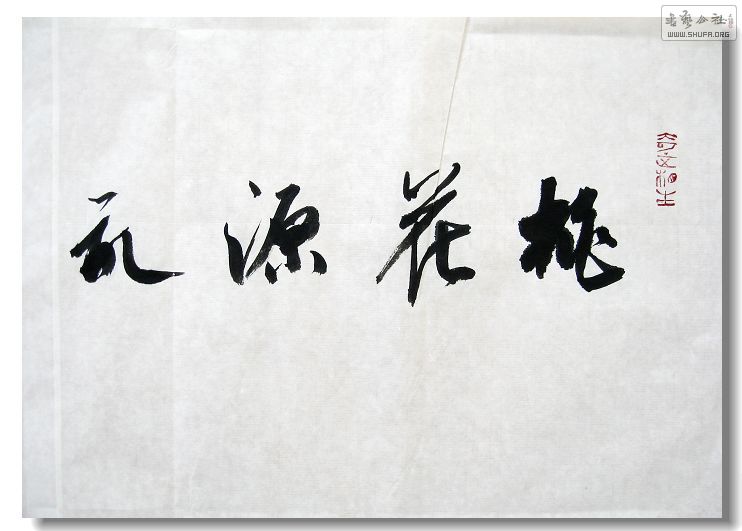 桃花源记
书艺公社
WWW.SHUFA.ORG